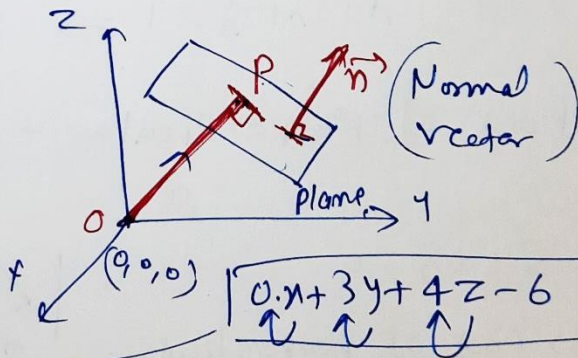 Z
P
n
(Normal
vector)
Plane
y
O
(0,0,0)
x
0.x + 3y + 4z - 6